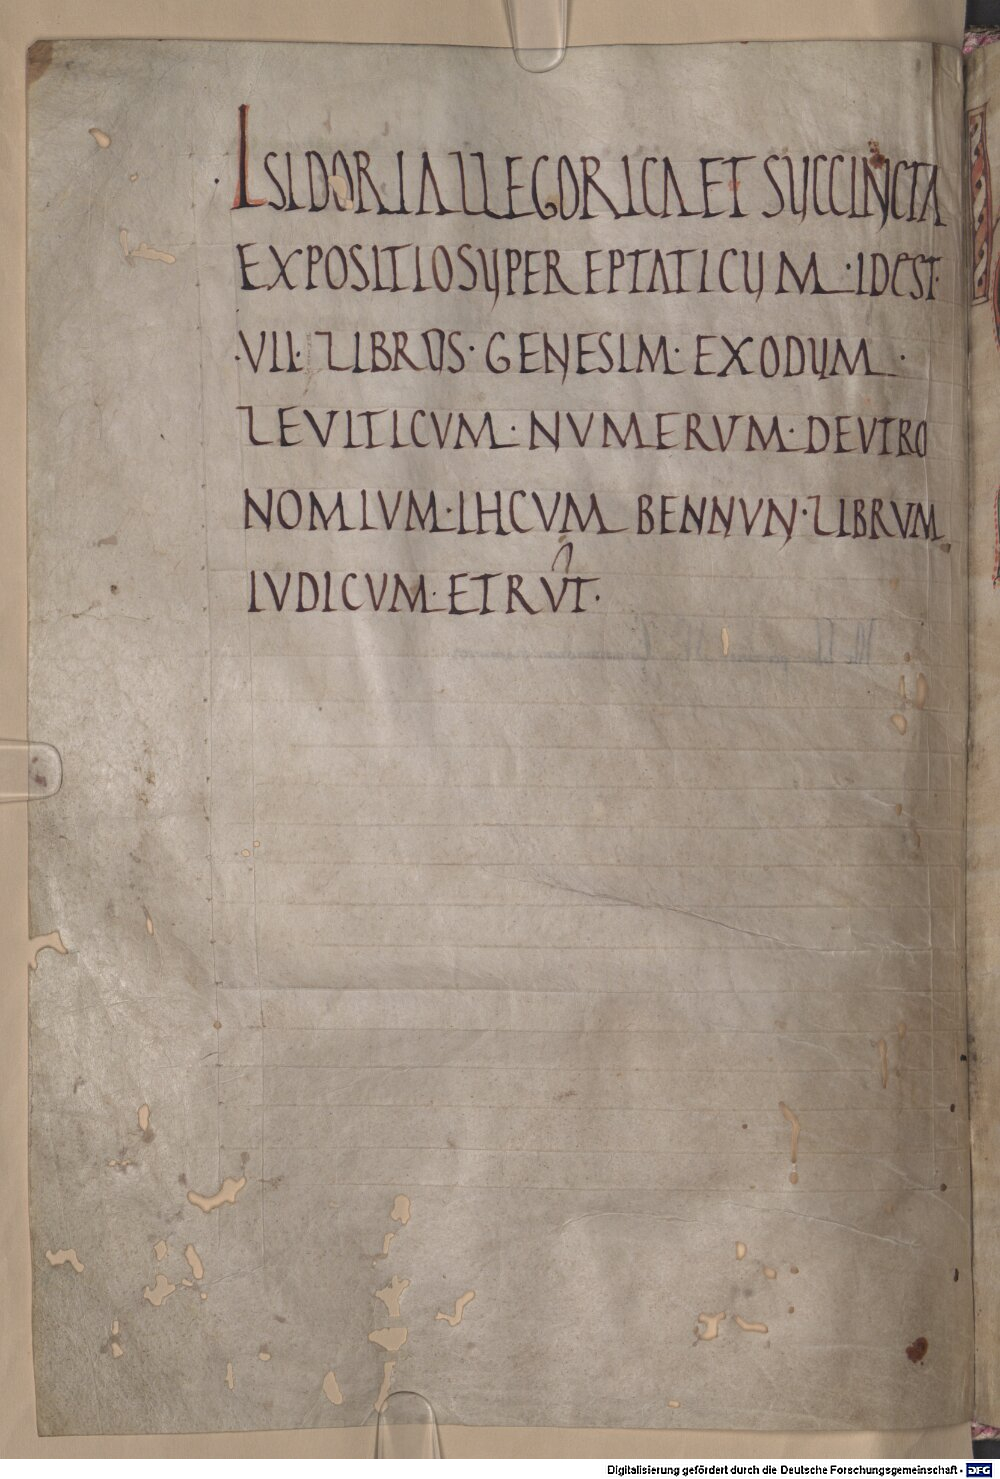 ·ISIDORI ALLEGORICA ET SUCCINCTA
EXPOSITIO SUPER EPTATICUM·IDEST·
·VII·LIBROS·GENESIM·EXODUM·
LEVITICUM·NVMERVM·DEVTRO
NOMIVM·IHCVM BENNVN·LIBRVM
IVDICVM·ET RVT·
Digitalisierung gefördert durch die Deutsche Forschungsgemeinschaft - DFG